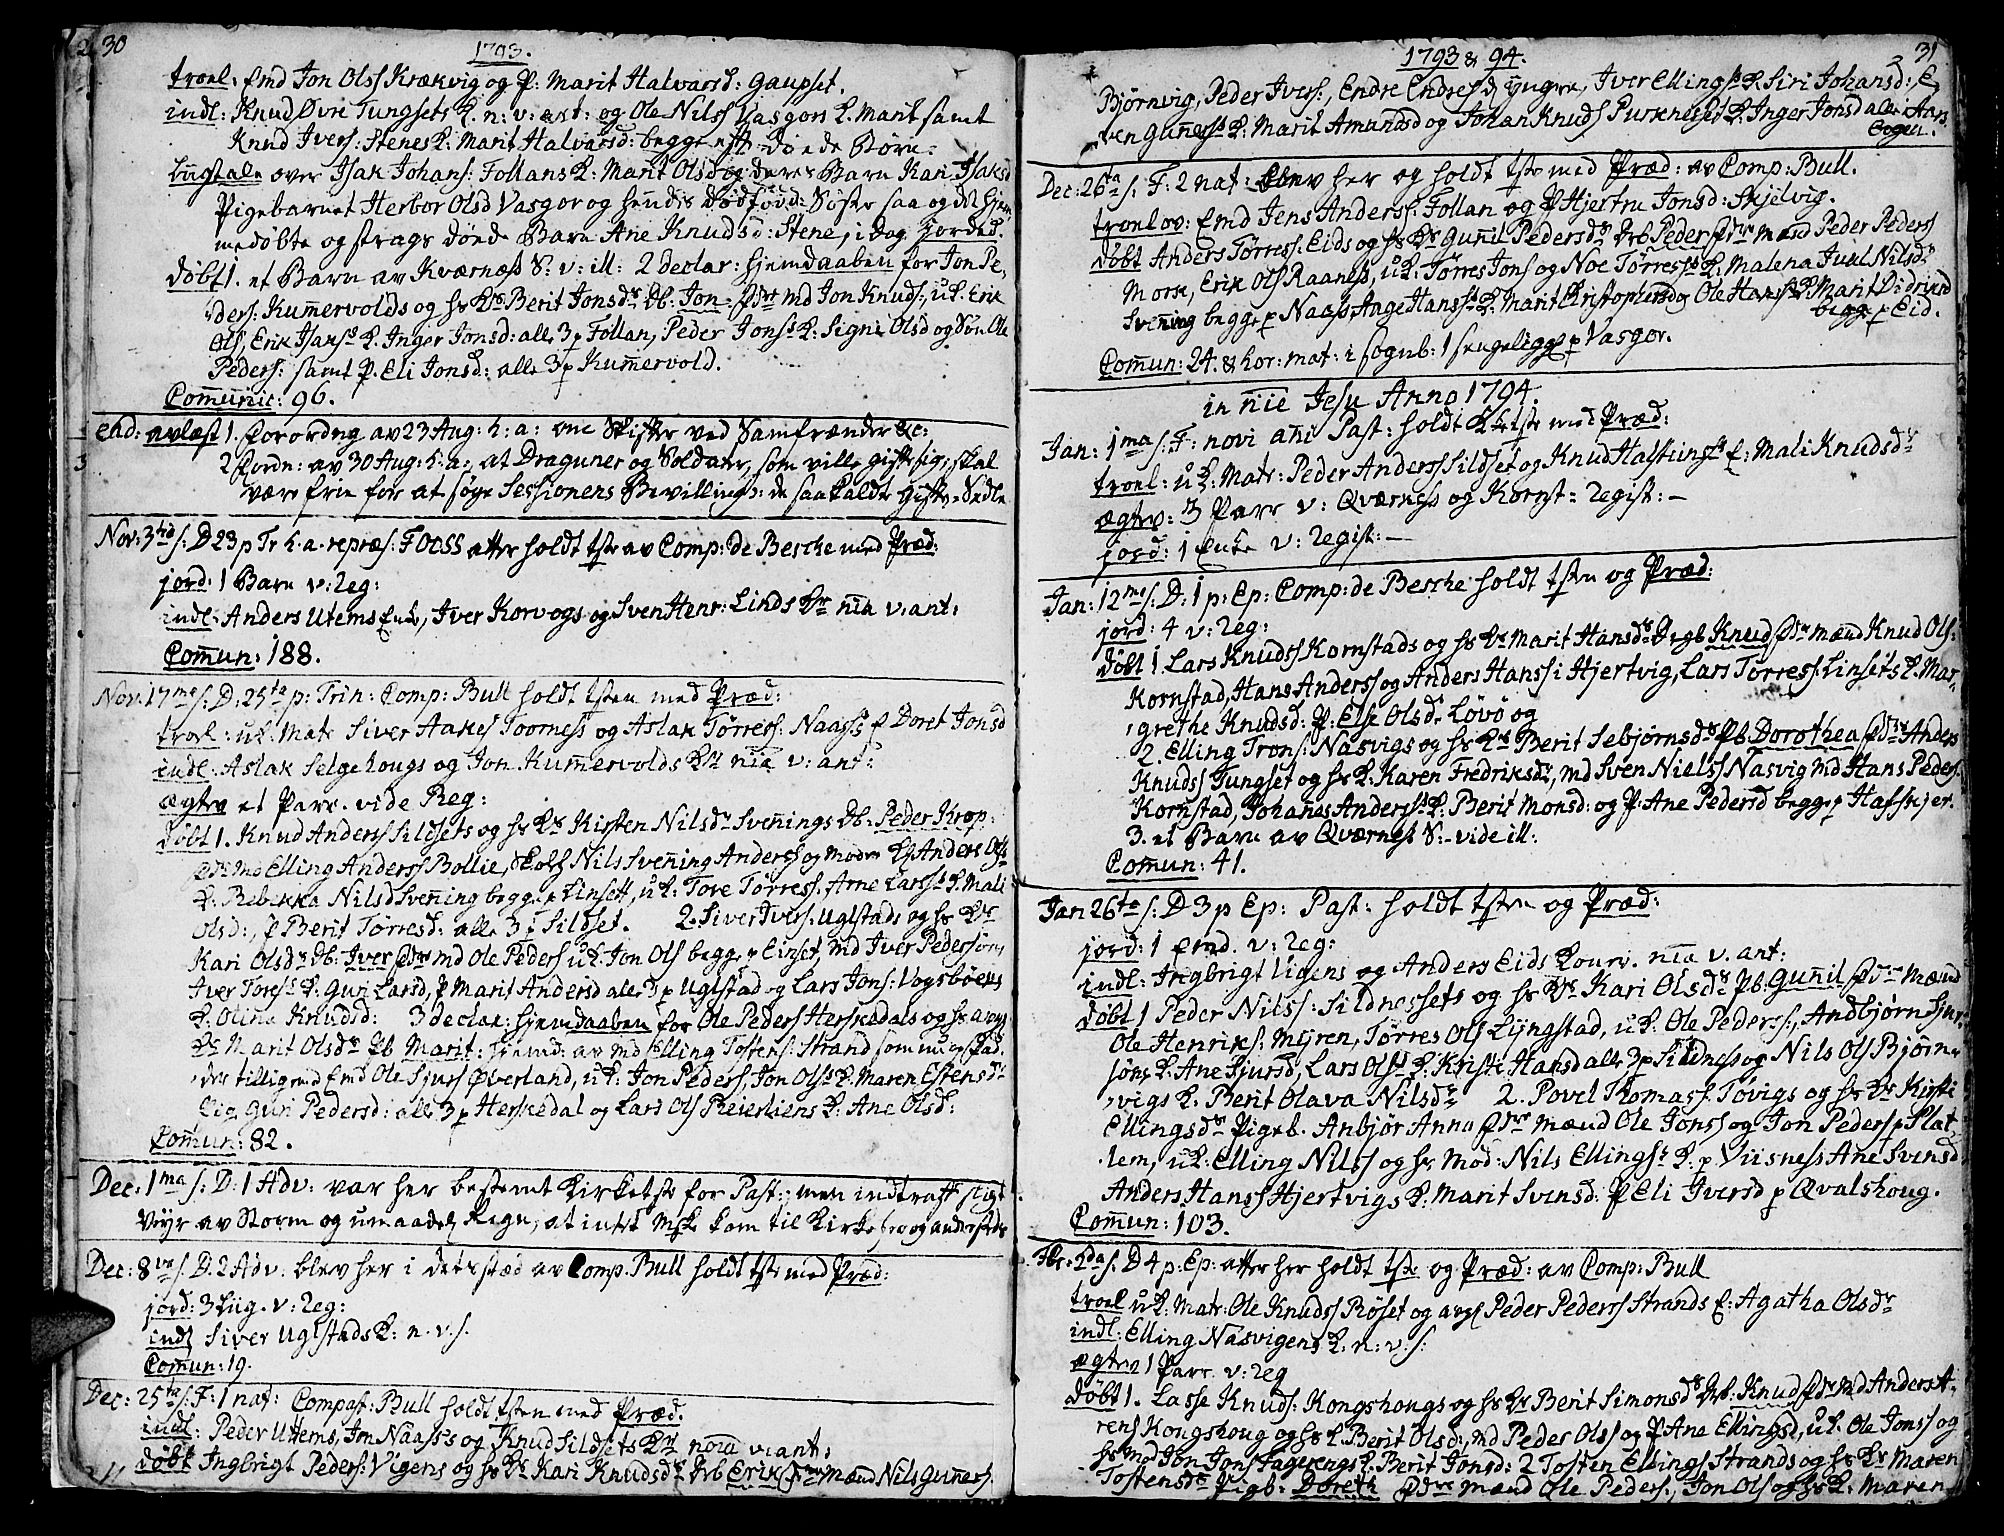 30
1793.
troel: Emd Jon Olsś Krækvig og P: Marit Halvarsd: Gaupset.
indl: Knud Øvre Tungsets K. n: v: ant: og Ole Nilsś Vasgors K. Marit samt
Knud Ivers: Stenes K: Marit Halvarsd: begge eft: döede Börn:
Liigtale over Isak Johans: Follans K: Marit Olsd og deres Barn Kari Isaksd
Pigebarnet Herbor Olsd Vasgor og hendes dødfödd: Söster saa og det hjem
medøbte og strags döede Barn Ane Knudsd: Stene, i dag jorded.
döbt 1. et Barn av Kværness S: v: ill: 2 declar: hjemdaaben for Jon Pe,
ders: Kummervolds og hs Kr Berit Jonsdr Db: Jon Fdre md Jon Knuds, uK. Erik
Ols, Erik Isakss K. Inger Jonsd: alle 3 p Follan, Peder Jonss K: Signe Olsd og Sön Ole
Peders: samt P. Eli Jonsd: alle 3 p Kummervold.
Communic: 96.
avlæst 1. Forordng av 23 Aug: h: a: om Skifter ved Samfrænder &c:
2 Fordn: av 30 Aug: h: a:, at Draguner og Soldater, som ville gifte sig, skal
være frie for at søge Sessionens Bevillings: de saakaldte Gifte-Sedle
Nov: 3tia s: D 23 p Tr h. a. repræs: FOOSS atter holdt tste av Comp: de Besche med Præd:
jord: 1 Barn v: Reg:
indl: Anders Utems Enke, Iver Korvogs og Sven Henr: Linds Kr nia v: ant:
Commun: 188.
Nov. 17ma s: D: 25ta p: Trin: Comp: Bull holdt tsten med Præd:
troel: uK. Matr Siver Aakes Toorness og Aslak Törres: Naass & Doret Jonsd
indl: Aslak Selgehougs og Jon Kummervolds Kr nia v: ant:
ægtev et Parr. vide Reg:
döbt 1. Knud Anderss Sildsets og hs Kr Kirsten Nilsdr Svenings Db: Peder Krop:
Fdre md Elling Anderss Bollie, Skolh Nils Svenning Anderss og Moder K: Anders Olss
K. Rebekka Nilsd Svenning begge p Linset, uK: Tore Törress: Arne Larss K. Mali
Olsd:, P Berit Törresd: alle 3 p Sildset. 2. Siver Ivers: Uglstads og hs Kr
Kari Olsdr Db: Iver Fdre md Ole Peders uK: Jon Ols begge p Einset, md Iver Pedersön,
Iver Toress K: Guri Larsd, P Marit Andersd alle 3 p Uglstad og Lars Jons: Vogsböens
K. Olina Knudsd: 3 declar: hjemdaaben for Ole Peders Herskedals og hs
Kr Marit Olsdr Pb Marit: hjemd: av md Elling Tostens: Strand som nu og Fad.
der tilligemed Emd Ole Sjurs Øverland, uK: Jon Peders, Jon Olss K: Maren Estensdr
Guri Pedersd: alle 3 p Herskedal og Lars Ols Reierliens K: Ane Olsd:
Commun: 82.
Dec: 1ma s: D: 1 Adv: var her bestemt Kirketste for Past:, men indtraff sligt
Veyr av Storm og umaadel Regn, at intet Msk kom til Kirke her og andersteds
Dec: 8va s: D. 2 Adv. blev her i dets stæd av Comp. Bull holdt tste med Præd:
jord: 3 Liig. v: Reg:
indl Siver Uglstads K: n. v. s.
Commun: 19.
Dec: 25ta s: F: 1 nat: Compast: Bull holdt tsten med Præd.
indl: Peder Utems, Jon Naass's og Knud Sildsets Kr nova v: ant:
döbt Ingbrigt Peders: Vigens og hs Kr Kari Knudsdr Db Erik Fdre mænd Nils Gunners:
1793 & 94.
31
Björnvig, Peder Ivers:, Endre Endres d yngre, Iver Ellings K. Siri Johansd:
ven Gunners K: Marit Amundsd og Johan Knuds Purkness K. Inger Jonsd alle Aars
bogen.
Dec: 26ta s: F: 2 nat: blev her og holdt tste med Præd: av Comp: Bull.
troelov: Emd Jens Anders: Follan og P Hjertru Jonsd: Skjelvig.
döbt Anders Törress: Eids og hs Kr Gunil Pedersdr Db Peder Fdre mænd Peder Peders
Mork, Erik Ols Raaness, uK: Törres Jons og Noe Törress K: Malena Juul Nilsdr
Svening begge p Naass, Aage Hanss K: Marit Kristophersd og Ole Hanss K: Marit Didriksd
begge p Eid.
Commun: 24. & hor: mat: i sognb: 1 sengeligge p Vasgor.
in nie Jesu Anno 1794.
Jan: 1ma s: F: novi ani Past: holdt Kirketste med Præd:
troel: uK: Matr: Peder Anderss Sildset og Knud Halstenss E: Mali Knudsdr
ægtev: 3 Parr v: Qværness og Kornst: Regist: —
jord: 1 Enke v: Regist: —
Jan: 12ma s: D: 1 p: Ep: Comp: de Besche holdt tsten og Præd:
jord: 4 v: Reg:
döbt 1. Lars Knudss Kornstads og hs Kr Marit Hansdr Drgb Knud Fdre mænd Knud Ols:
Kornstad, Hans Anderss og Anders Hanss i Hjertvig, Lars Törress: Linsets K. Mar-
grethe Knudsd: P: Else Olsd. Lövö og
2. Elling Trons: Nasvigs og hs Kr Berit Sebjörnsdr Pb Dorothea Fdre Anders
Knuds Tungset og hs K. Karen Fredriksdr, md Sven Nielss Nasvig md Hans Peders
Kornstad, Johannes Anderss K. Berit Monsd: og P. Ane Pedersd begge p Hafskjer.
3. et Barn av Qværness S:- vide ill:
Commun: 41.
Jan 26ta s: D 3 p Ep: Past: holdt tsten og Præd:
jord: 1 Emd. v: Reg:
indl: Ingbrigt Vigens og Anders Eids Koner. nia v. ant:
döbt 1 Peder Nilss: Sildnessets og hs Kr Kari Olsdr Pb: Gunil Fdre mænd
Ole Henriks: Myren, Törres Ols Lyngstad, uK. Ole Peders:, Andbjörn Sjur,
söns K. Ane Sjursd, Lars Olss K. Kristi Hansd alle 3 p Sildness og Nils Ols Björn-
vigs K. Berit Olava Nilsdr 2. Povel Thomass: Tövigs og hs Kr Kirsti
Ellingsdr Pigeb. Anbjör Anna Fdre mænd Ole Jonss og Jon Peders p Plat
lem, uK: Elling Nilss og hs Mod: Nils Ellings K: p Viisness Ane Svensd
Anders Hanss Hjertvigs K. Marit Svensd: P Eli Iversd p Qvalshoug.
Commun: 103.
Fbr: 2da s: D 4 p. Ep: atter her holdt tste og Præd: av Comp: Bull
troel uK: Matr: Ole Knudss Röset og Peder Peders Strands E: Agatha Olsdr
indl: Elling Nasvigens K. n: v: s:
ægtev 1 Parr. v: Reg
döbt 1. Lasse Knuds: Kongshougs og hs Kr Berit Simonsdr Db. Knud Fdre md Anders A-
rens Kongshoug og hs K. Berit Olsd:, md Peder Olss og P Ane Ellingsd, uK. Ole Jonss og
hs md Jon Jons Fagerengs K. Berit Jonsd: 2 Tosten Ellings Strands og hs Kr Maren
Tostensdr Pigb: Doreth Fdre mænd Ole Peders:, Jon Ols og hs K. Maren